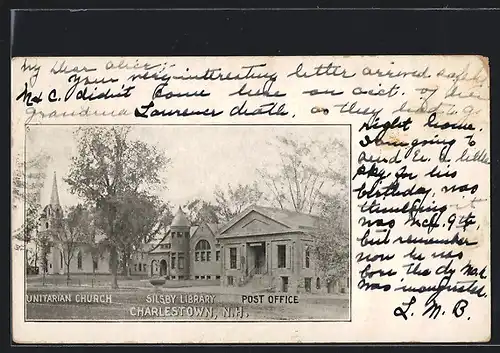 My Dear Alice:
Your very interesting letter arrived safely
M & C. didn't come here on acct. of her
grandma Laurence death, as they had to go
right home.
I am going to
send Er. a letter
for his
birthday, was
thinking
was Mch. 9th,
but remember
now he was
born the day Mck
was inaugurated.
L. M. B.
UNITARIAN CHURCH
SILSBY LIBRARY
POST OFFICE
CHARLESTOWN, N.H.